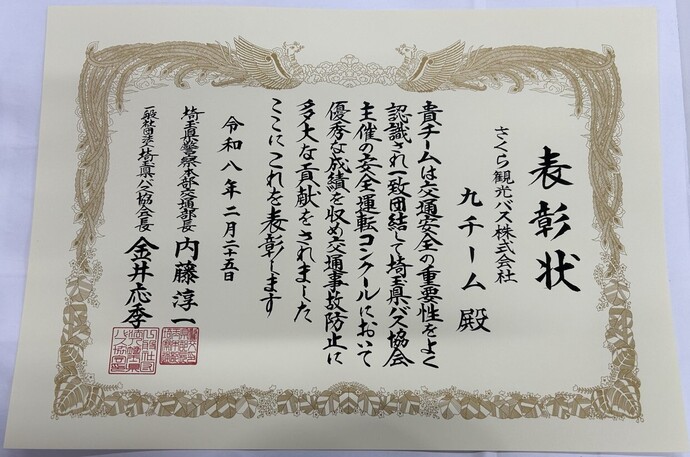 表彰状
さくら観光バス株式会社
九チーム 殿
貴チームは交通安全の重要性をよく
認識され一致団結して埼玉県バス協会
主催の安全運転コンクールにおいて
優秀な成績を収め交通事故防止に
多大な貢献をされました
ここにこれを表彰します
令和八年二月二十五日
埼玉県警察本部交通部長 内藤淳一
一般社団法人埼玉県バス協会長 金井応季